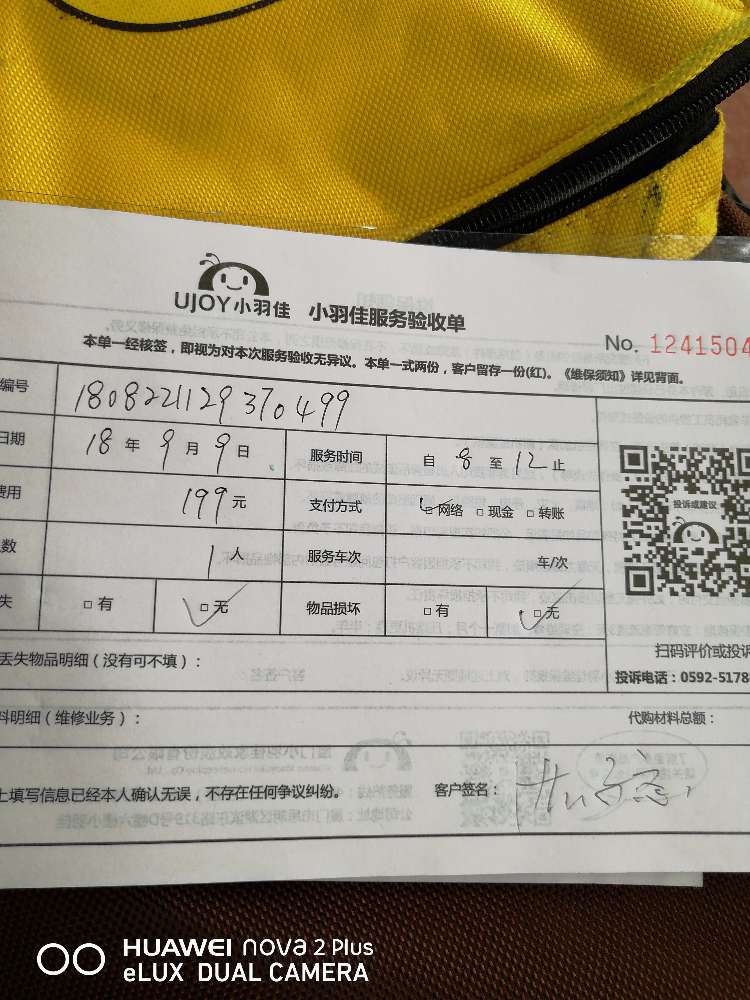 UJOY小羽佳 小羽佳服务验收单
No. 1241504
本单一经核签，即视为对本次服务验收无异议。本单一式两份，客户留存一份(红)。《维保须知》详见背面。
编号 1808221129370499
日期 18 年 9 月 9 日 服务时间 自 8 至 12 止
费用 199 元 支付方式 □网络 □现金 □转账
数 1 人 服务车次 车/次
失 □有 □无 物品损坏 □有 □无
投诉或建议
扫码评价或投诉
丢失物品明细（没有可不填）：
投诉电话：0592-5178
料明细（维修业务）： 代购材料总额：
上填写信息已经本人确认无误，不存在任何争议纠纷。 客户签名：
HUAWEI nova 2 Plus
eLUX DUAL CAMERA